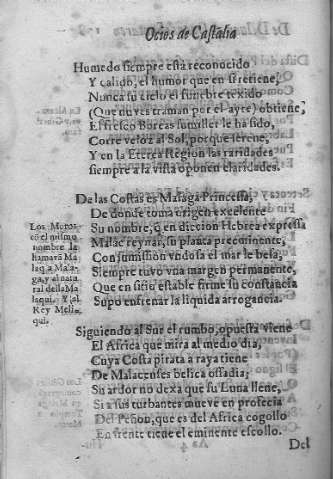 Ocios de Castalia
Humedo siempre està reconocido
Y calido, el humor que en si retiene,
Nunca su cielo el funebre texido
(Que nuves traman por el ayre) obtiene,
El fresco Boreas sumiller le ha sido,
Corre veloz al Sol, porque serene,
Y en la Eterea Region las raridades
siempre a la vista oponen claridades.
De las Costas es Malaga Princessa,
De donde toma origen excelente
Su nombre, q̃ en diccion Hebrea expressa
Malac reynar, su planta preeminente,
Con sumission vndosa el mar le besa,
Siempre tuvo vna margen permanente,
Que en sitio estable firme su constancia
Supo enfrenar la liquida arrogancia.
Los Moros
cõ el mismo
nombre la
llamarã Ma
laq a Mala-
ga, y el natu
ral della Ma
laqui. Y el
Rey Meli-
qui.
Siguiendo al Sur el rumbo, opuesta viene
El Africa que mira al medio dia,
Cuya Costa pirata a raya tiene
De Malacenses belica ossadia;
Su ardor no dexa que su Luna llene,
Si a sus turbantes mueve en profecia
Del Peñon, que es del Africa cogollo
En frente tiene el eminente escollo.
Del